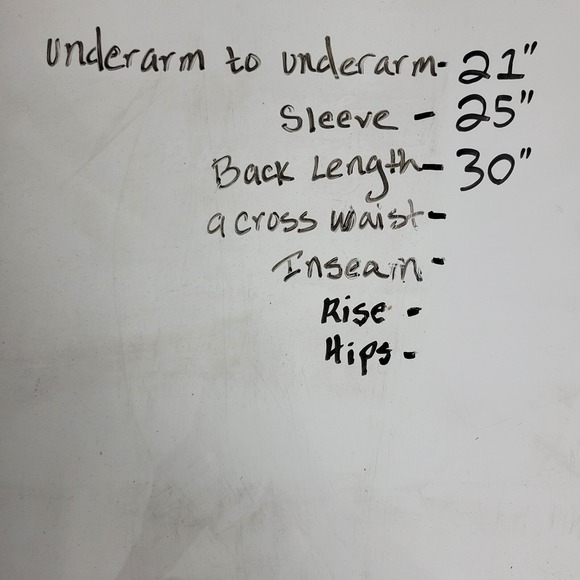 underarm to underarm- 21"
Sleeve - 25"
Back Length- 30"
across waist-
Inseam -
Rise -
Hips -